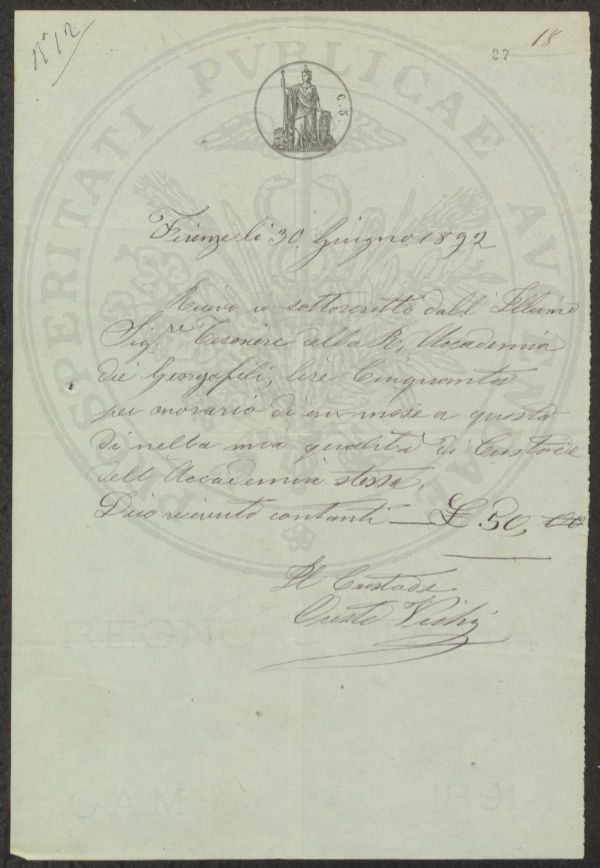 N° 12
27 18
PROSPERITATI PVBLICAE AVGENDAE
C. 5.
Firenze li 30. Giugno 1892
Ricevo io sottoscritto dall Illumo
Sig.r Tesoriere della R. Accademia
dei Georgofili, lire Cinquanta
per onorario di un mese a questo
dì nella mia qualità di Custode
dell' Accademia stessa.
Dico ricevuto contanti — £ 50, 00
Il Custode
Oreste Vichi